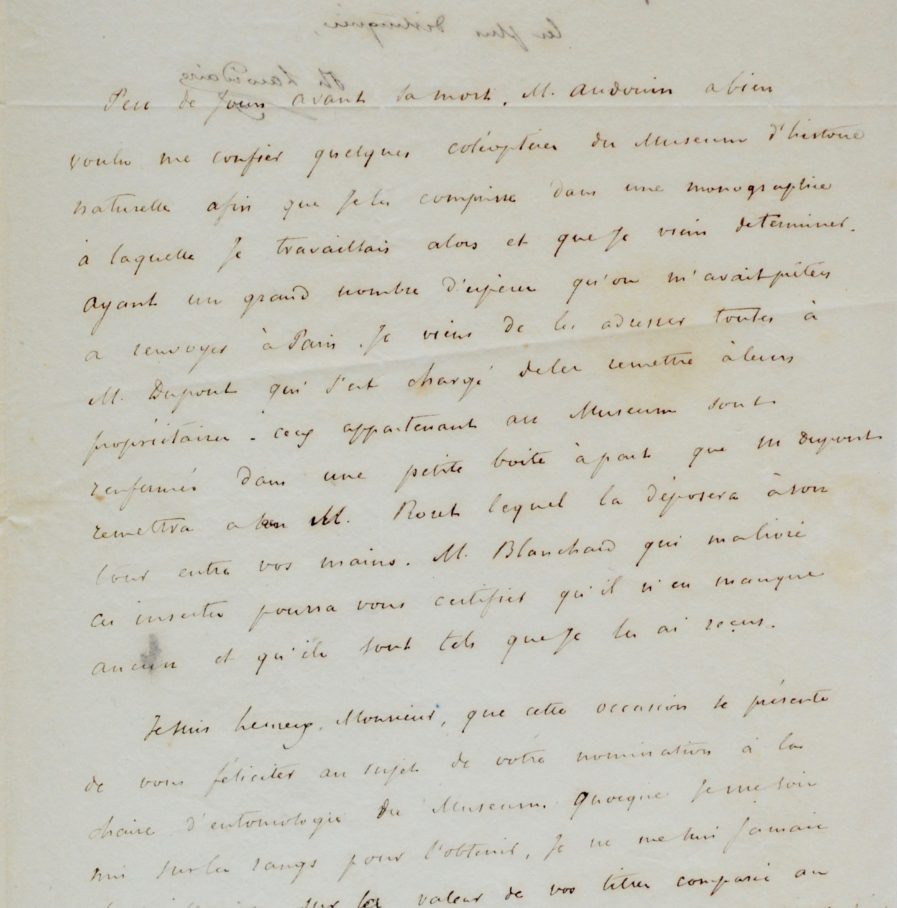 les plus distingués,
Th. Lacordaire
Peu de jours avant sa mort, M. Audouin a bien
voulu me confier quelques coléoptères du Museum d'histoire
naturelle afin que je les comprisse dans une monographie
à laquelle je travaillais alors et que je viens determiner.
ayant un grand nombre d'espèces qu'on m'avait prêtées
a renvoyer à Paris. Je viens de les adresser toutes à
M. Dupont qui s'est chargé de les remettre à leurs
propriétaires. ceux appartenant au Museum sont
renfermés dans une petite boite à part que M Dupont
remettra a M. Roret lequel la déposera à son
tour entre vos mains. M. Blanchard qui m'a livré
ces insectes pourra vous certifier qu'il n'en manque
aucun et qu'ils sont tels que je les ai reçus.
Je suis heureux, Monsieur, que cette occasion se présente
de vous féliciter au sujet de votre nomination à la
chaire d'entomologie du Museum. Quoique je me sois
mis sur les rangs pour l'obtenir, je ne me suis jamais
sur la valeur de vos titres comparés au